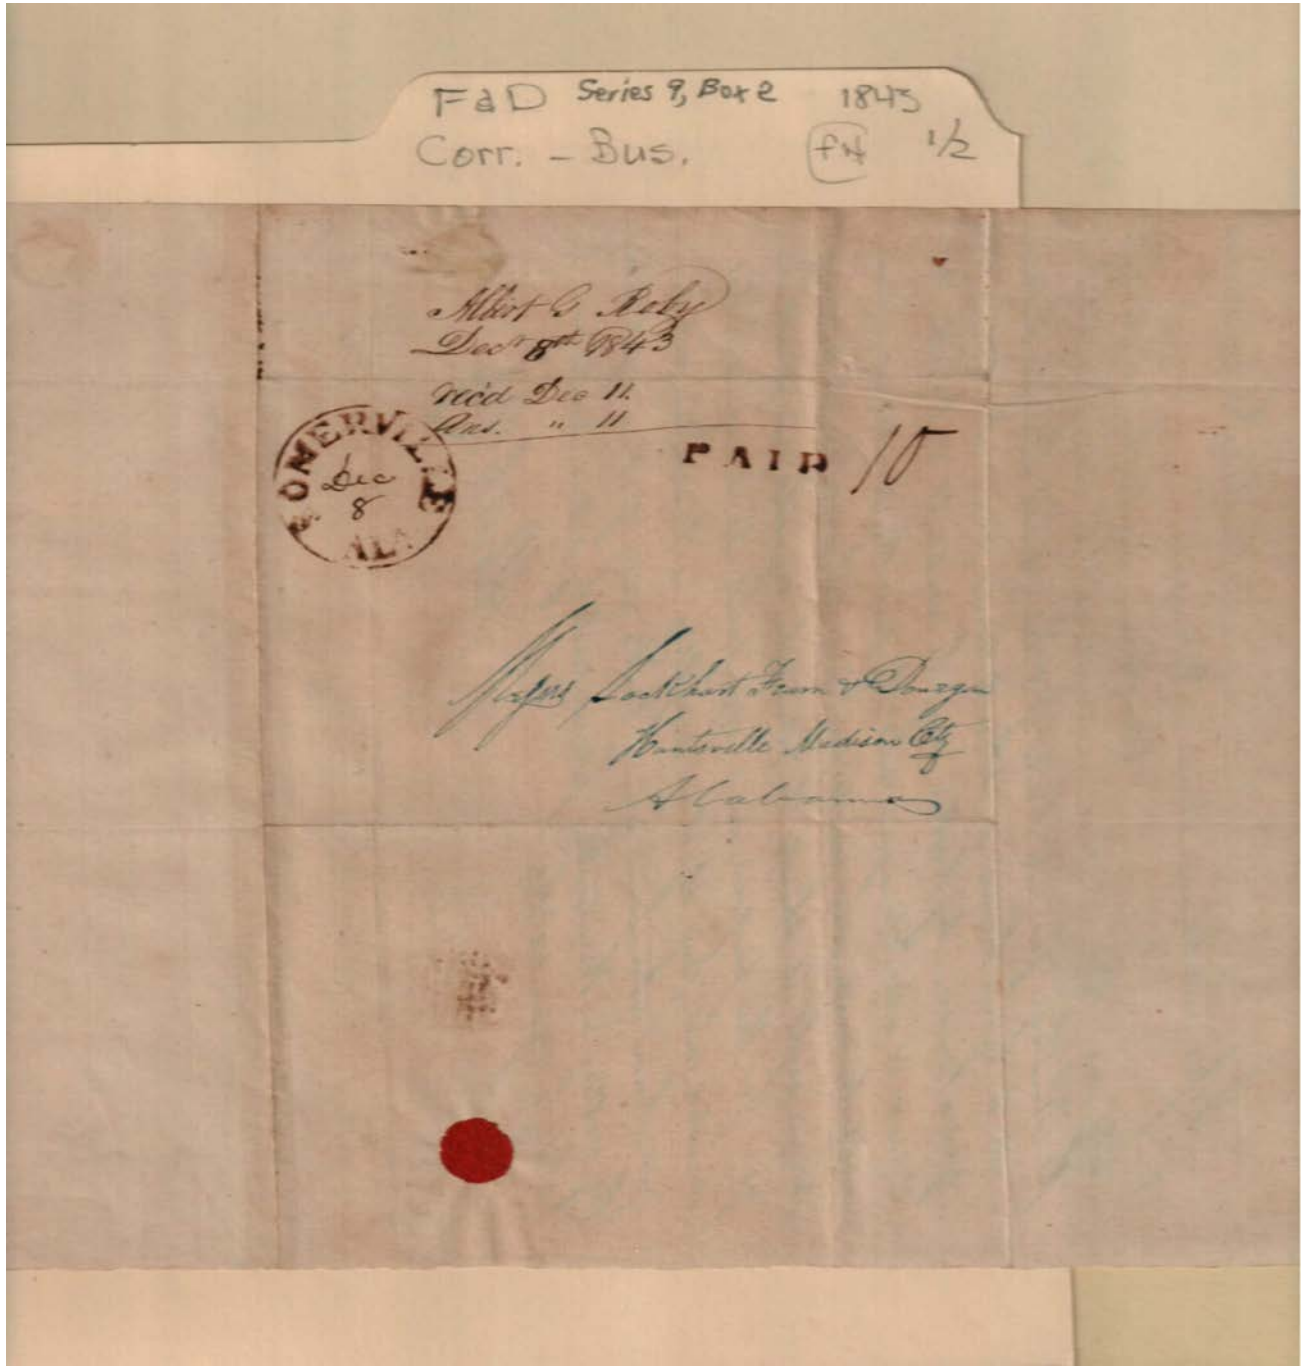 F&D Series 9, Box 2 1843
Corr. - Bus. 1/2
Albert G Roby
Decr 8th 1843
rec'd Dec 11.
Ans. " 11
SOMERVILLE
Dec
8
ALA
PAID 10
Messrs Lockhart Fearn & Donegan
Huntsville Madison Cty
Alabama